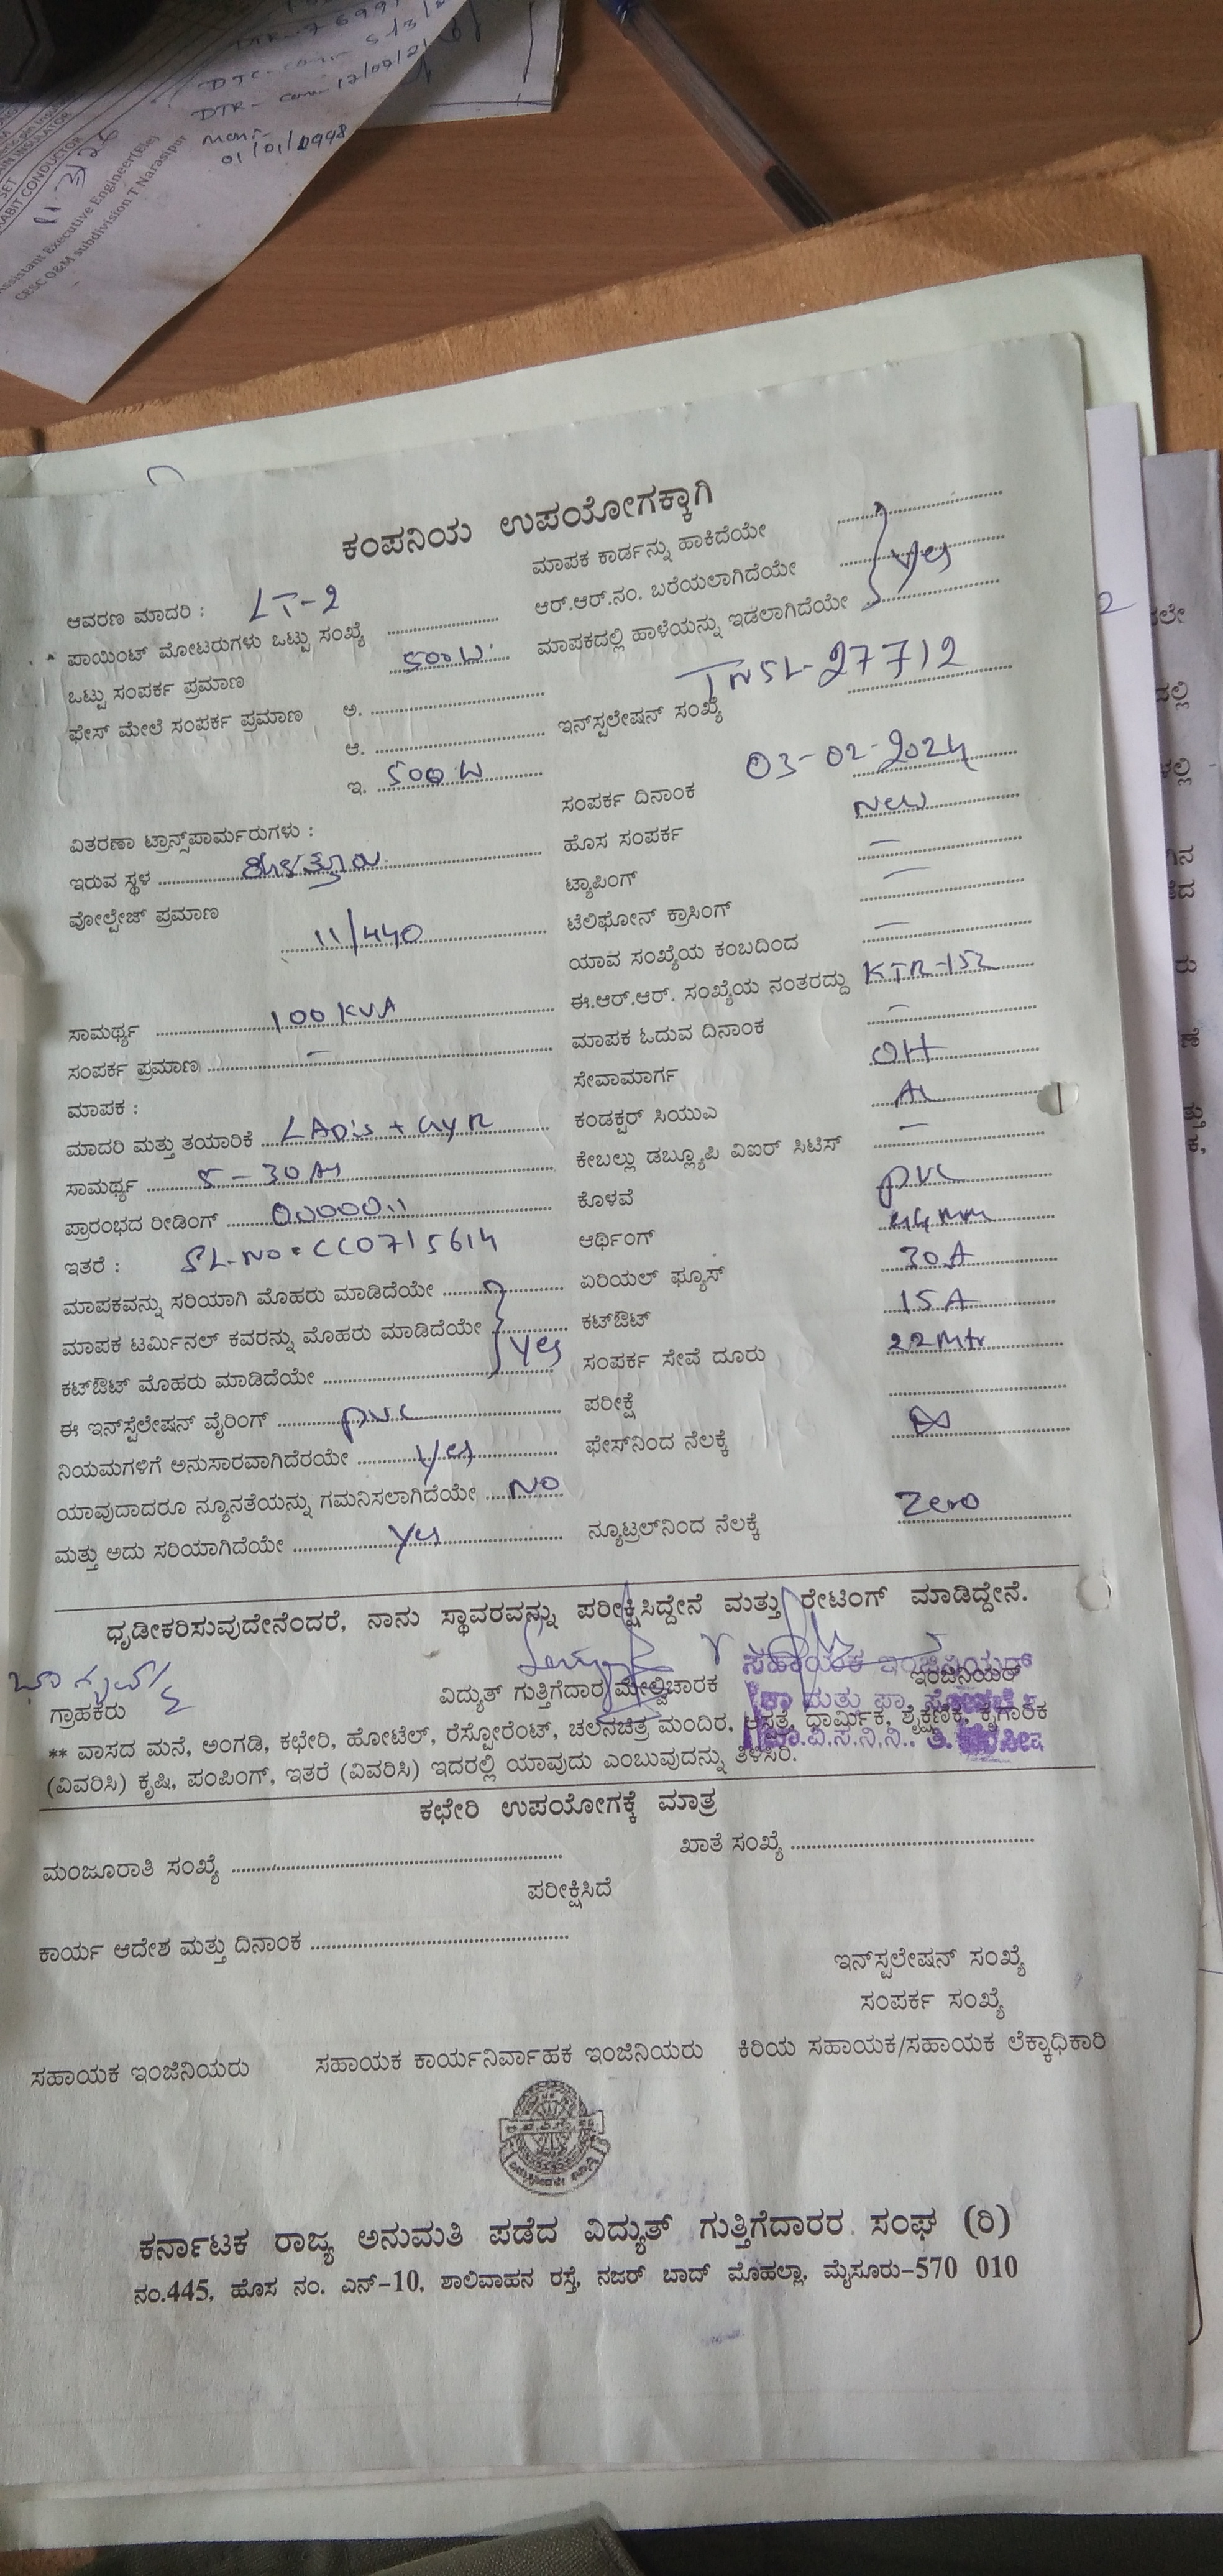 DTR- com- 17/07/2
01/01/0998
RABIT CONDUCTOR
Assistant Executive Engineer(Ele)
CESC O&M subdivision T Narasipur
ಕಂಪನಿಯ ಉಪಯೋಗಕ್ಕಾಗಿ
ಮಾಪಕ ಕಾರ್ಡನ್ನು ಹಾಕಿದೆಯೇ
ಆವರಣ ಮಾದರಿ : LT-2
ಆರ್.ಆರ್.ನಂ. ಬರೆಯಲಾಗಿದೆಯೇ Yes
ಪಾಯಿಂಟ್ ಮೋಟರುಗಳು ಒಟ್ಟು ಸಂಖ್ಯೆ
ಮಾಪಕದಲ್ಲಿ ಹಾಳೆಯನ್ನು ಇಡಲಾಗಿದೆಯೇ
ಒಟ್ಟು ಸಂಪರ್ಕ ಪ್ರಮಾಣ 500W
ಫೇಸ್ ಮೇಲೆ ಸಂಪರ್ಕ ಪ್ರಮಾಣ ಅ.
ಇನ್‌ಸ್ಪಲೇಷನ್ ಸಂಖ್ಯೆ TNSL-27712
ಆ.
ಇ. 500W
ಸಂಪರ್ಕ ದಿನಾಂಕ 03-02-2024
ವಿತರಣಾ ಟ್ರಾನ್ಸ್‌ಪಾರ್ಮರುಗಳು :
ಹೊಸ ಸಂಪರ್ಕ New
ಇರುವ ಸ್ಥಳ
ಟ್ಯಾಪಿಂಗ್ —
ವೋಲ್ಟೇಜ್ ಪ್ರಮಾಣ 11/440
ಟೆಲಿಫೋನ್ ಕ್ರಾಸಿಂಗ್ —
ಯಾವ ಸಂಖ್ಯೆಯ ಕಂಬದಿಂದ —
ಸಾಮರ್ಥ್ಯ 100 KVA
ಈ.ಆರ್.ಆರ್. ಸಂಖ್ಯೆಯ ನಂತರದ್ದು KTR-152
ಸಂಪರ್ಕ ಪ್ರಮಾಣ —
ಮಾಪಕ ಓದುವ ದಿನಾಂಕ —
ಮಾಪಕ :
ಸೇವಾಮಾರ್ಗ OH
ಮಾದರಿ ಮತ್ತು ತಯಾರಿಕೆ
ಕಂಡಕ್ಟರ್ ಸಿಯುಎ AL
ಸಾಮರ್ಥ್ಯ 5-30A
ಕೇಬಲ್ಲು ಡಬ್ಲ್ಯೂಪಿ ವಿಐರ್ ಸಿಟಿಸ್ —
ಪ್ರಾರಂಭದ ರೀಡಿಂಗ್
ಕೊಳವೆ PVC
ಇತರೆ : SL-NO: CC0715614
ಆರ್ಥಿಂಗ್
ಮಾಪಕವನ್ನು ಸರಿಯಾಗಿ ಮೊಹರು ಮಾಡಿದೆಯೇ
ಏರಿಯಲ್ ಫ್ಯೂಸ್ 30A
ಮಾಪಕ ಟರ್ಮಿನಲ್ ಕವರನ್ನು ಮೊಹರು ಮಾಡಿದೆಯೇ Yes
ಕಟ್‌ಔಟ್ 15A
ಕಟ್‌ಔಟ್ ಮೊಹರು ಮಾಡಿದೆಯೇ
ಸಂಪರ್ಕ ಸೇವೆ ದೂರು 22Mtr
ಈ ಇನ್‌ಸ್ಪೆಲೇಷನ್ ವೈರಿಂಗ್ PVC
ಪರೀಕ್ಷೆ
ನಿಯಮಗಳಿಗೆ ಅನುಸಾರವಾಗಿದೆರಯೇ Yes
ಫೇಸ್‌ನಿಂದ ನೆಲಕ್ಕೆ ∞
ಯಾವುದಾದರೂ ನ್ಯೂನತೆಯನ್ನು ಗಮನಿಸಲಾಗಿದೆಯೇ NO
ಮತ್ತು ಅದು ಸರಿಯಾಗಿದೆಯೇ Yes
ನ್ಯೂಟ್ರಲ್‌ನಿಂದ ನೆಲಕ್ಕೆ Zero
ಧೃಡೀಕರಿಸುವುದೇನೆಂದರೆ, ನಾನು ಸ್ಥಾವರವನ್ನು ಪರೀಕ್ಷಿಸಿದ್ದೇನೆ ಮತ್ತು ರೇಟಿಂಗ್ ಮಾಡಿದ್ದೇನೆ.
ಸಹಾಯಕ ಇಂಜಿನಿಯರ್
ಗ್ರಾಹಕರು ವಿದ್ಯುತ್ ಗುತ್ತಿಗೆದಾರ ಮೇಲ್ವಿಚಾರಕ ಇಂಜಿನಿಯರ್
** ವಾಸದ ಮನೆ, ಅಂಗಡಿ, ಕಛೇರಿ, ಹೋಟೆಲ್, ರೆಸ್ಟೋರೆಂಟ್, ಚಲನಚಿತ್ರ ಮಂದಿರ, ಆಸ್ಪತ್ರೆ, ಧಾರ್ಮಿಕ, ಶೈಕ್ಷಣಿಕ, ಕೈಗಾರಿಕ
(ವಿವರಿಸಿ) ಕೃಷಿ, ಪಂಪಿಂಗ್, ಇತರೆ (ವಿವರಿಸಿ) ಇದರಲ್ಲಿ ಯಾವುದು ಎಂಬುವುದನ್ನು ತಿಳಿಸಿರಿ.
ಕಛೇರಿ ಉಪಯೋಗಕ್ಕೆ ಮಾತ್ರ
ಮಂಜೂರಾತಿ ಸಂಖ್ಯೆ
ಖಾತೆ ಸಂಖ್ಯೆ
ಪರೀಕ್ಷಿಸಿದೆ
ಕಾರ್ಯ ಆದೇಶ ಮತ್ತು ದಿನಾಂಕ
ಇನ್‌ಸ್ಪಲೇಷನ್ ಸಂಖ್ಯೆ
ಸಂಪರ್ಕ ಸಂಖ್ಯೆ
ಸಹಾಯಕ ಇಂಜಿನಿಯರು ಸಹಾಯಕ ಕಾರ್ಯನಿರ್ವಾಹಕ ಇಂಜಿನಿಯರು ಕಿರಿಯ ಸಹಾಯಕ/ಸಹಾಯಕ ಲೆಕ್ಕಾಧಿಕಾರಿ
ಕರ್ನಾಟಕ ರಾಜ್ಯ ಅನುಮತಿ ಪಡೆದ ವಿದ್ಯುತ್ ಗುತ್ತಿಗೆದಾರರ ಸಂಘ (ರಿ)
ನಂ.445, ಹೊಸ ನಂ. ಎನ್-10, ಶಾಲಿವಾಹನ ರಸ್ತೆ, ನಜರ್ ಬಾದ್ ಮೊಹಲ್ಲಾ, ಮೈಸೂರು-570 010